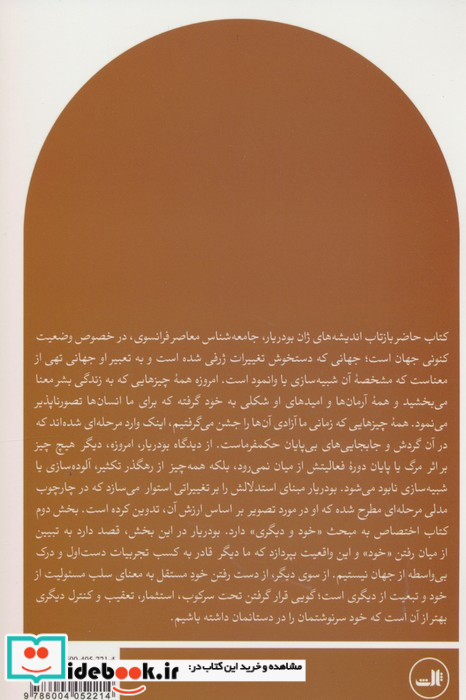 کتاب حاضر بازتاب اندیشه‌های ژان بودریار، جامعه‌شناس معاصر فرانسوی، در خصوص وضعیت
کنونی جهان است؛ جهانی که دستخوش تغییرات ژرفی شده است و به تعبیر او جهانی تهی از
معناست که مشخصهٔ آن شبیه‌سازی یا وانمود است. امروزه همهٔ چیزهایی که به زندگی بشر معنا
می‌بخشید و همهٔ آرمان‌ها و امیدهای او شکلی به خود گرفته که برای ما انسان‌ها تصورناپذیر
می‌نمود. همهٔ چیزهایی که زمانی ما آزادی آن‌ها را جشن می‌گرفتیم، اینک وارد مرحله‌ای شده‌اند که
در آن گردش و جابجایی‌های بی‌پایان حکمفرماست. از دیدگاه بودریار، امروزه، دیگر هیچ چیز
بر اثر مرگ یا پایان دورهٔ فعالیتش از میان نمی‌رود، بلکه همه‌چیز از رهگذر تکثیر، آلوده‌سازی یا
شبیه‌سازی نابود می‌شود. بودریار مبنای استدلالش را بر تغییراتی استوار می‌سازد که در چارچوب
مدلی مرحله‌ای مطرح شده که او در مورد تصویر بر اساس ارزش آن، تدوین کرده است. بخش دوم
کتاب اختصاص به مبحث «خود و دیگری» دارد. بودریار در این بخش، قصد دارد به تبیین
از میان رفتن «خود» و این واقعیت بپردازد که ما دیگر قادر به کسب تجربیات دست‌اول و درک
بی‌واسطه از جهان نیستیم. از سوی دیگر، از دست رفتن خودِ مستقل به معنای سلب مسئولیت از
خود و تبعیت از دیگری است؛ گویی قرار گرفتن تحت سرکوب، استثمار، تعقیب و کنترل دیگری
بهتر از آن است که خود سرنوشتمان را در دستانمان داشته باشیم.
ثالث
9786004052214
مشاهده و خرید این کتاب در:
idebook.ir